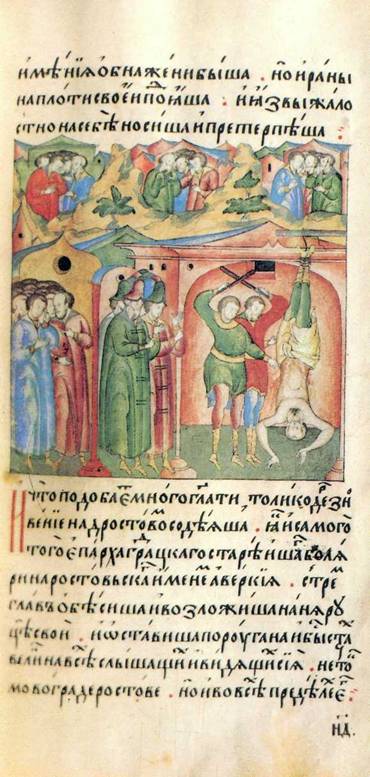 имѣнїѧ ѡбнаженн быша . но и раны
на плоти своеи поꙗша : и ꙗзвы жало
стно на себѣ носиша и претерпѣша :
И что подобает много глати . толико дрⷥно
вение над ростовом содѣꙗша . ꙗⷦ и самого
того епарха градцкаго старѣишаⷢ болѧ
рина ростовьскаⷢ именеⷨ аверкиꙗ . стреⷨ
главъ обѣсиша и возложиша на нѧ рꙋ
цѣ свои . и ѡставиша порꙋгана и быⷭ страⷯ
велии на всѣⷯ слышащиⷯ и видѧщиⷯ сиꙗ . не тоⷦ
мо во граде ростове . но и во всѣⷯ пределеⷯ еⷢ
н҃д.